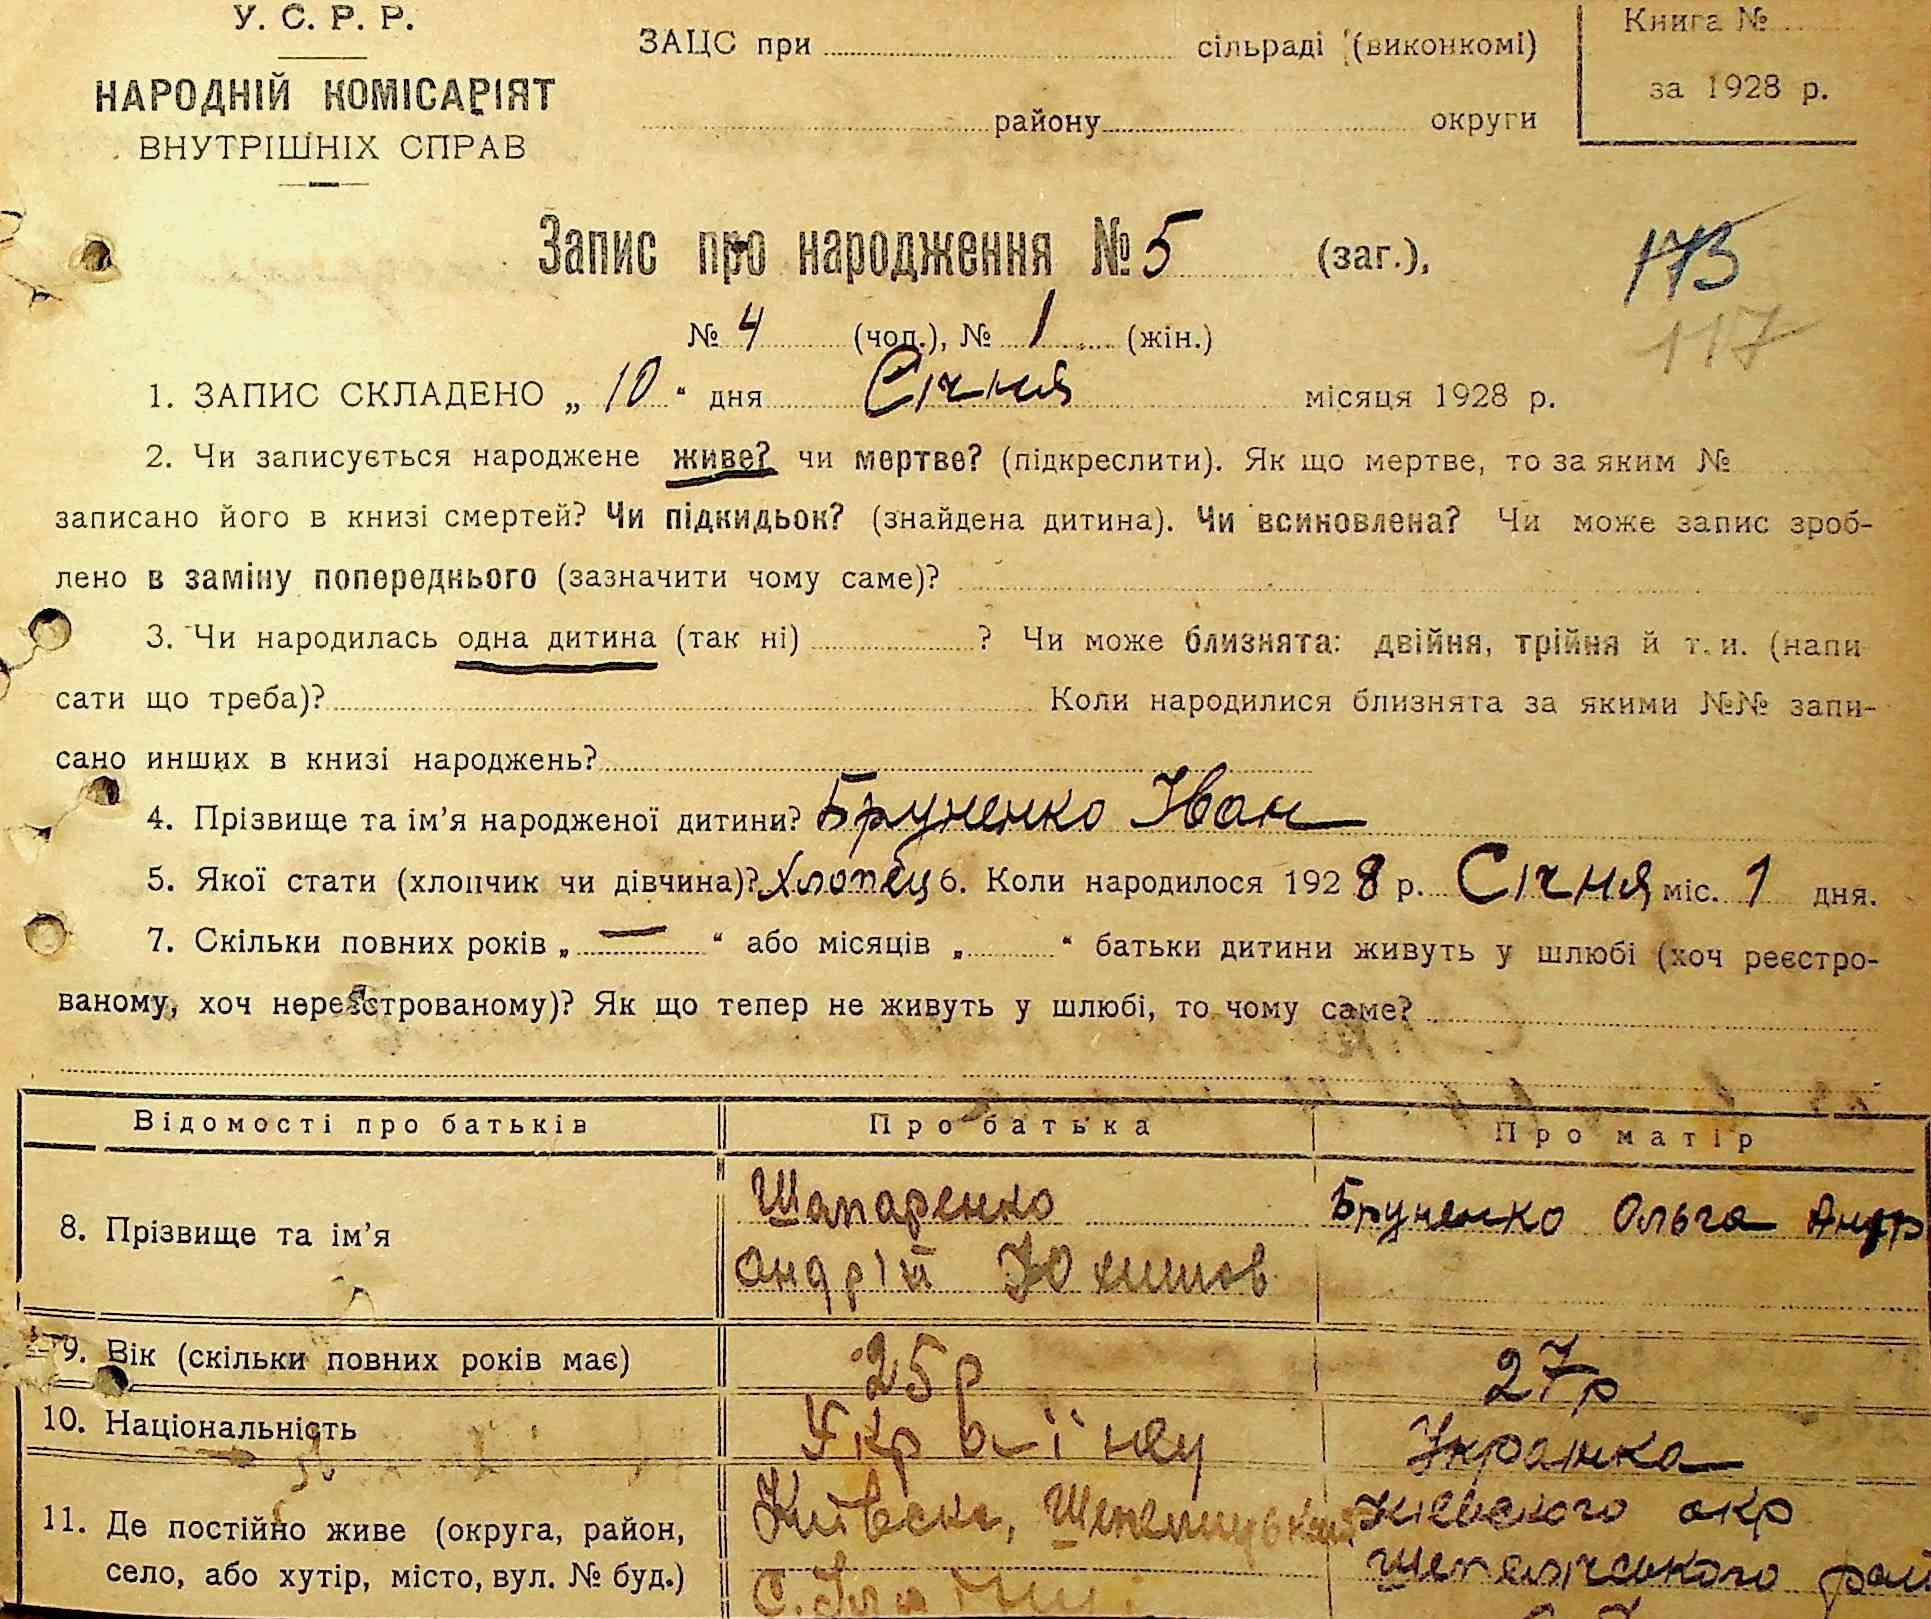 У. С. Р. Р.
НАРОДНІЙ КОМІСАРІЯТ
ВНУТРІШНІХ СПРАВ
ЗАЦС при сільраді (виконкомі)
району округи
Книга №
за 1928 р.
Запис про народження № 5 (заг.),
№ 4 (чол.), № 1 (жін.)
113
117
1. ЗАПИС СКЛАДЕНО „ 10 “ дня Січня місяця 1928 р.
2. Чи записується народжене живе? чи мертве? (підкреслити). Як що мертве, то за яким №
записано його в книзі смертей? Чи підкидьок? (знайдена дитина). Чи всиновлена? Чи може запис зроб-
лено в заміну попереднього (зазначити чому саме)?
3. Чи народилась одна дитина (так ні) ? Чи може близнята: двійня, трійня й т. и. (напи-
сати що треба)? Коли народилися близнята за якими №№ запи-
сано инших в книзі народжень?
4. Прізвище та ім’я народженої дитини? Бруненко Іван
5. Якої стати (хлопчик чи дівчина)? Хлопець 6. Коли народилося 1928 р. Січня міс. 1 дня.
7. Скільки повних років „ — “ або місяців „ “ батьки дитини живуть у шлюбі (хоч реєстро-
ваному, хоч нереєстрованому)? Як що тепер не живуть у шлюбі, то чому саме?
Відомості про батьків Про батька Про матір
8. Прізвище та ім’я Шапаренко Бруненко Ольга Андр
Андрій Юхимов
9. Вік (скільки повних років має) 25 р 27 р
10. Національність Українец Украінка
11. Де постійно живе (округа, район, Київська, Киевского окр
село, або хутір, місто, вул. № буд.) с. район